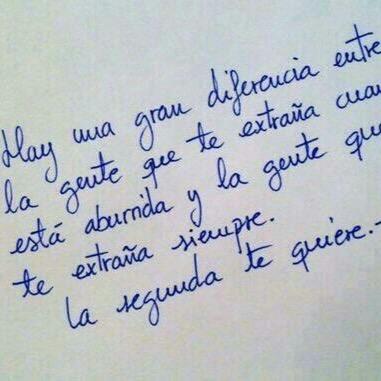 Hay una gran diferencia entre
la gente que te extraña cuan
está aburrida y la gente que
te extraña siempre.
la segunda te quiere.-